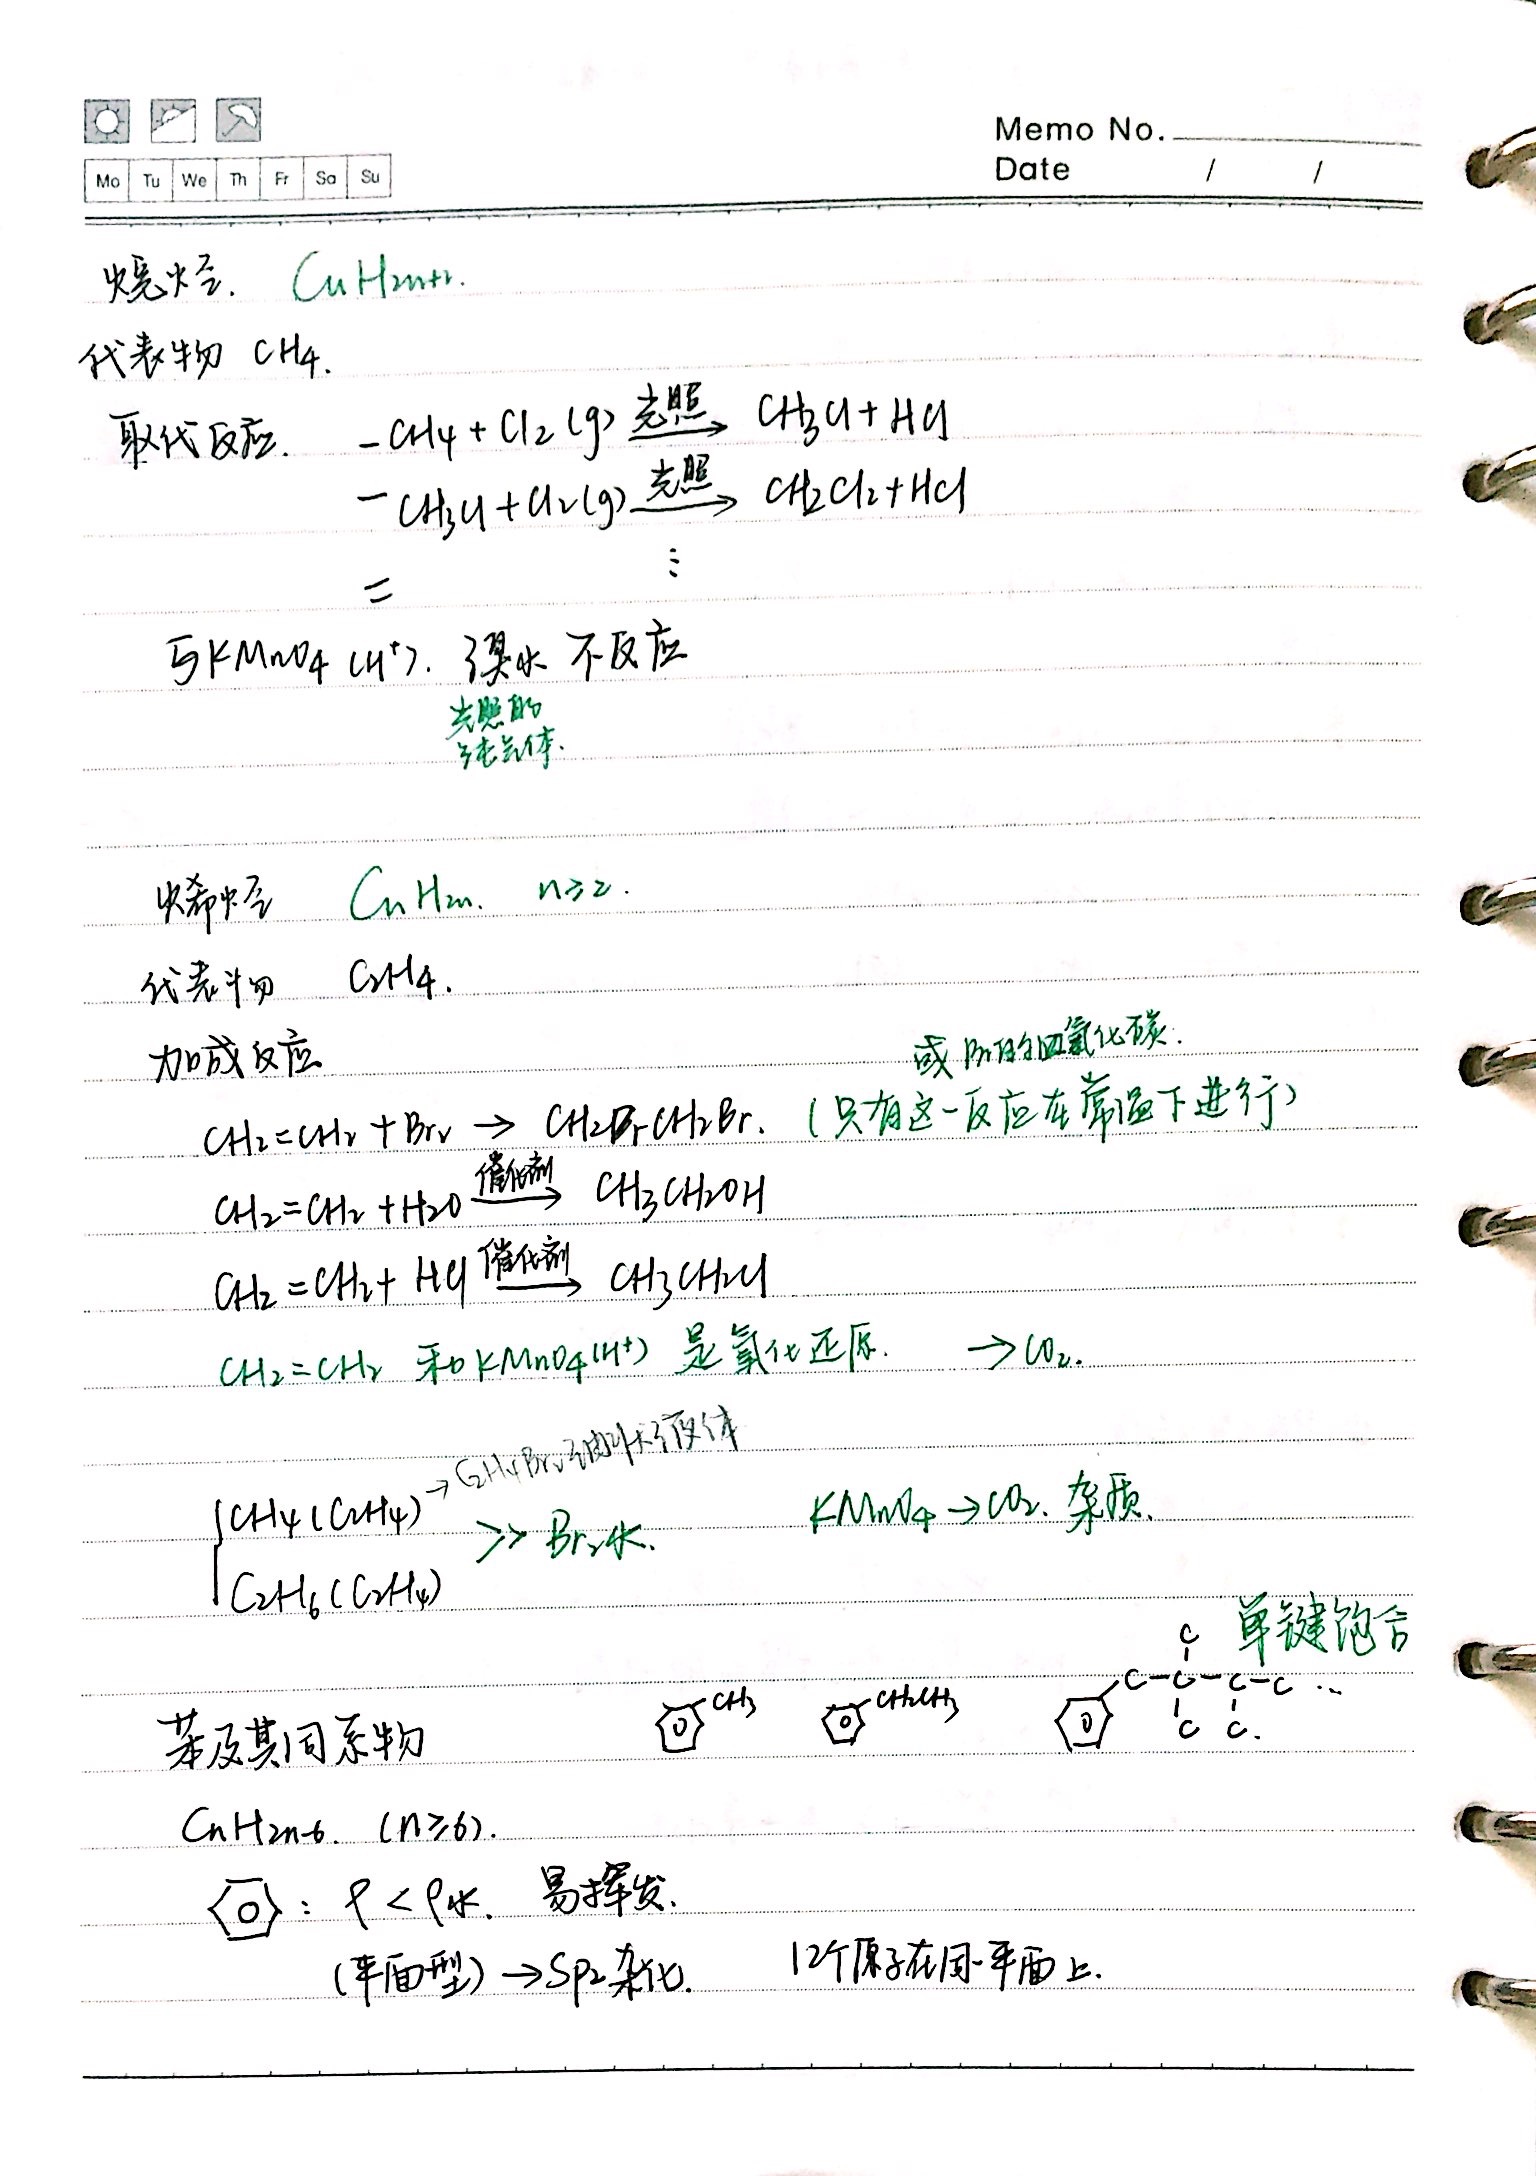 Memo No.
Mo Tu We Th Fr Sa Su
Date / /
烷烃. CnH2n+2.
代表物 CH4.
取代反应. -CH4+Cl2(g) 光照→ CH3Cl+HCl
-CH3Cl+Cl2(g) 光照→ CH2Cl2+HCl
⋮
=
与KMnO4(H+). 溴水 不反应
光照的
纯气体.
烯烃 CnH2n. n≥2.
代表物 C2H4.
加成反应
或Br2的四氯化碳.
CH2=CH2+Br2→CH2BrCH2Br. (只有这一反应在常温下进行)
CH2=CH2+H2O 催化剂→ CH3CH2OH
CH2=CH2+HCl 催化剂→ CH3CH2Cl
CH2=CH2 和KMnO4(H+) 是氧化还原. →CO2.
→C2H4Br2油状液体
{CH4(C2H4) >> Br2水. KMnO4→CO2.杂质.
C2H6(C2H4)
单键饱合
苯及其同系物 CH3 CH2CH3 C-C-C-C … C C C.
CnH2n-6. (n≥6).
: ρ<ρ水. 易挥发.
(平面型)→sp2杂化. 12个原子在同一平面上.